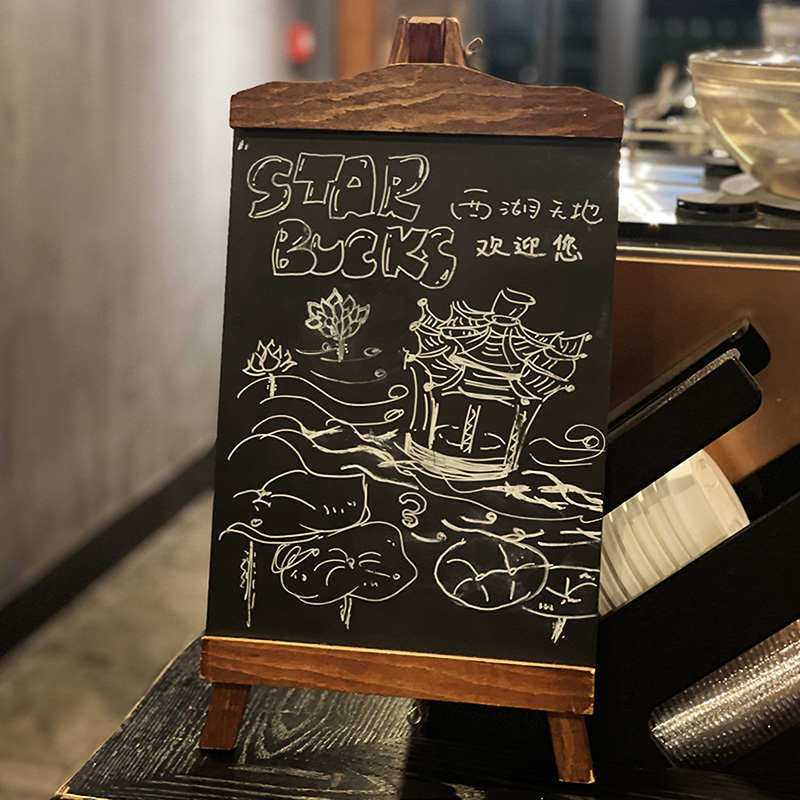 STAR
BUCKS
西湖天地
欢迎您